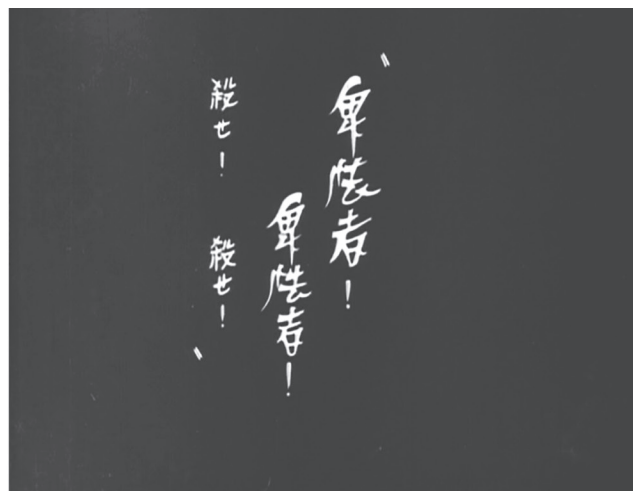 〝卑怯者!
卑怯者!
殺せ! 殺せ!〟